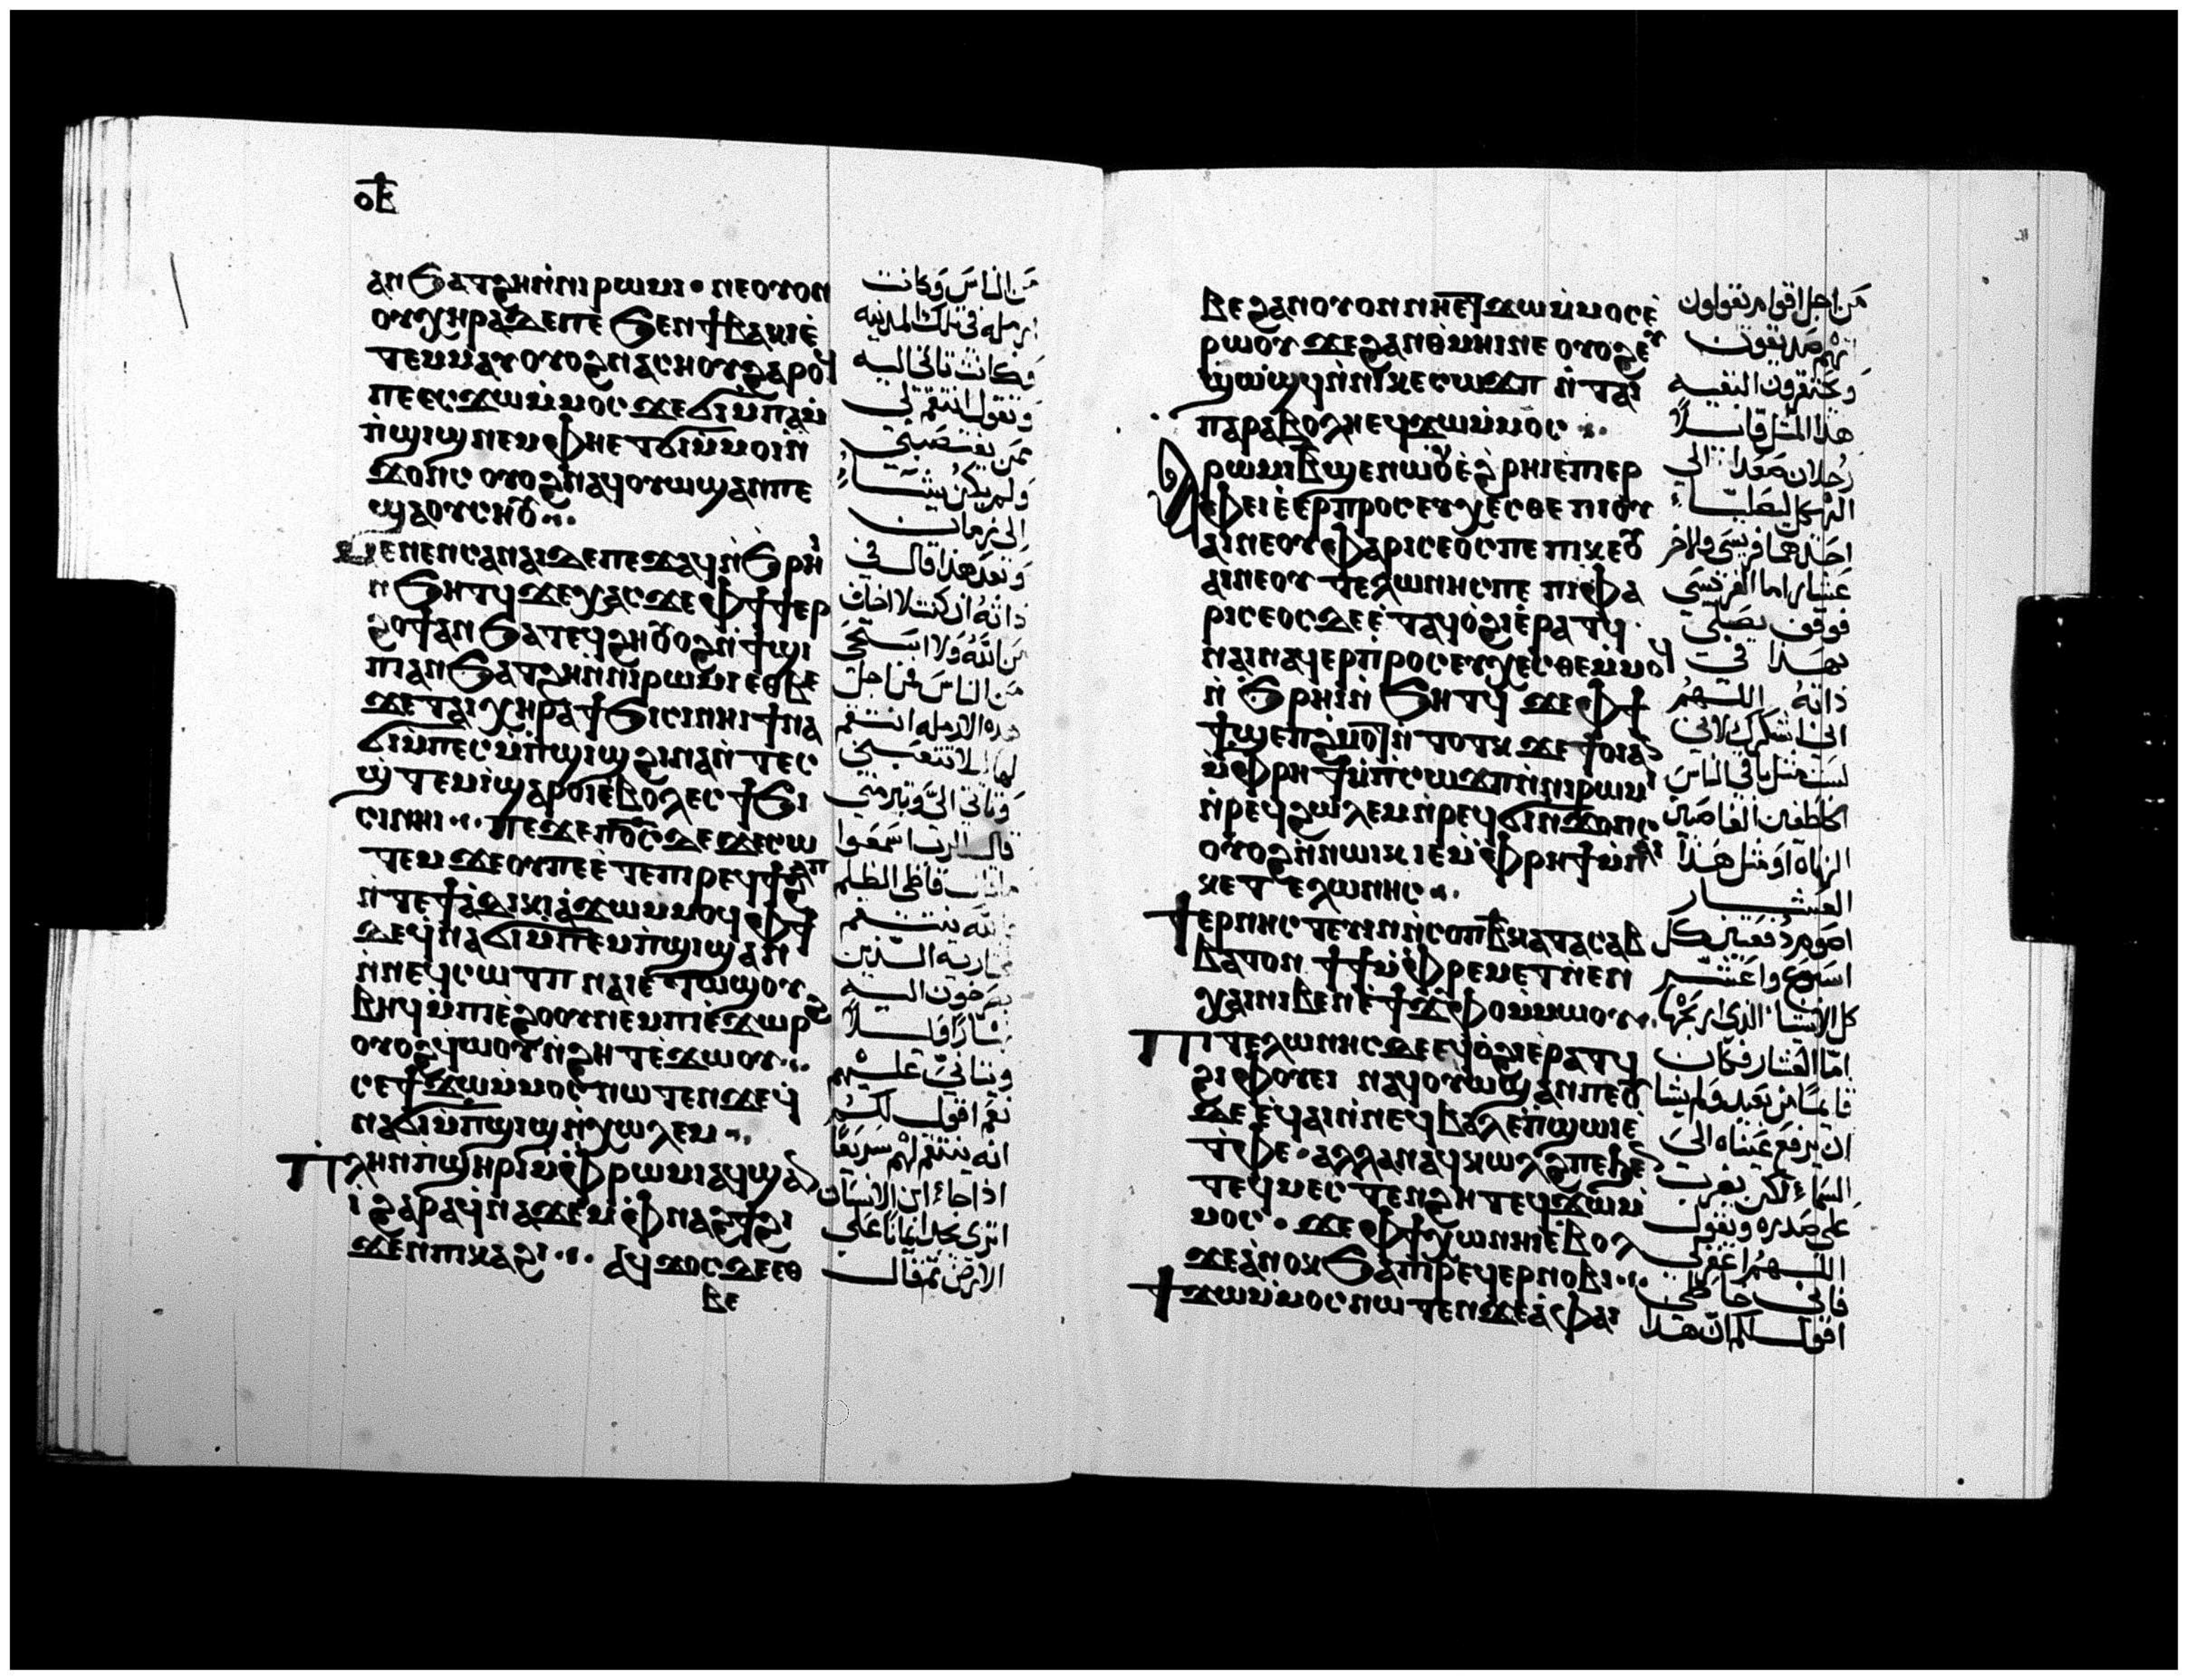 ⲟⲃ
ⲁⲛϧⲁⲧϩⲏⲛ̀ⲛⲓⲣⲱⲙⲓ · ⲛⲉⲟⲩⲟⲛ
ⲟⲩⲭⲏⲣⲁⲇⲉⲡⲉ ϧⲉⲛϯⲃⲁⲕⲓⲉ̀
ⲧⲉⲙⲙⲁⲩⲟⲩⲟϩⲛⲁⲥⲛⲏⲟⲩϩⲁⲣⲟϥ
ⲡⲉⲉⲥϫⲱⲙ̀ⲙⲟⲥ ϫⲉϭⲓⲙ̀ⲡⲁⲙ̀
ⲡ̀ϣⲓϣⲛⲉⲙⲫⲏⲉⲧϭⲓⲙ̀ⲙⲟⲓⲛ̀
ϫⲟⲛⲥ ⲟⲩⲟϩⲛⲁϥⲟⲩⲱϣⲁⲛⲡⲉ
ϣⲁⲟⲩⲥⲏⲟⲩ
ⲙⲉⲛⲉⲛⲥⲁⲛⲁⲓⲇⲉⲡⲉϫⲁϥⲛ̀ϧⲣⲏⲓ
ⲛ̀ϧⲏⲧϥϫⲉⲭⲁⲥϫⲉⲫϯϯⲉⲣ
ϩⲟϯⲁⲛϧⲁⲧⲉϥϩⲏⲟⲩⲟϩⲛ̀ϯϣⲓ
ⲡⲓⲁⲛϧⲁⲧϩⲏⲛ̀ⲛⲓⲣⲱⲙⲓⲉⲑⲃⲉ
ϫⲉⲧⲁⲓⲭⲏⲣⲁϯϧⲓⲥⲓⲛⲏⲓϯⲛⲁ
ϭⲓⲙ̀ⲡⲉⲥⲙ̀ⲡ̀ϣⲓϣϩⲓⲛⲁⲛ̀ⲧⲉⲥ
ϣ̀ⲧⲉⲙⲓ̀ϣⲁⲣⲟⲓⲉⲃⲟⲗⲉⲥϯϧⲓ
ⲥⲓⲛⲏⲓ ⲡⲉϫⲉⲡⲟ̅ⲥ̅ϫⲉⲥⲱ
ⲧⲉⲙ ϫⲉⲟⲩⲡⲉⲉ̀ⲧⲉⲡⲓⲣⲉϥϯϩⲁⲡ
ⲛ̀ⲧⲉϯⲁ̀ⲇⲓⲕⲓⲁ̀ϫⲱⲙⲙⲟϥ ⲫϯ
ϫⲉϥ̀ⲛⲁϭⲓⲙ̀ⲡⲉⲙⲡ̀ϣⲓϣⲁⲛ
ⲛ̀ⲛⲉϥⲥⲱⲧⲡ ⲛⲁⲓⲉⲧⲱϣⲟⲩ
ⲃⲏϥⲙ̀ⲡⲓⲉ̀ϩⲟⲟⲩⲛⲉⲙⲡⲓⲉ̀ϫⲱⲣϩ
ⲟⲩⲟϩϥⲱⲟⲩⲛ̀ϩⲏⲧⲉ̀ϫⲱⲟⲩ
ⲥⲉϯϫⲱⲙ̀ⲙⲟⲥⲛⲱⲧⲉⲛϫⲉϥ̀
ⲛⲁϭⲓⲙ̀ⲡϣⲓϣⲛ̀ⲭⲱⲗⲉⲙ
ⲡⲗⲏⲛⲡ̀ϣⲏⲣⲓⲙ̀ⲫⲣⲱⲙⲓⲁϥϣⲁⲛ
ⲓ̀ ϩⲁⲣⲁϥⲛⲁϫⲉⲙⲫⲛⲁϩϯϩⲓ
ϫⲉⲛⲡⲓⲕⲁϩⲓ ⲁϥϫⲟⲥⲇⲉⲉⲑ
ⲃⲉ
من الناس وكانت
ارمله في تلك المدينه
وكانت تاتي اليه
وتقول انتقم لي
ممن يغتصبني
ولم يكن يشاء
الى زمان
وبعد هذا قال في
ذاته ان كنت لا اخاف
من الله ولا استحي
من الناس فمن اجل
هذه الارمله انتقم
لها لئلا تتعبني
وتاتي الي وتبرمني
قال الرب اسمعوا
قاضي الظلم
الله ينتقم
لمختاريه الذين
يصرخون اليه
نهارا وليلا
ويتاني عليهم
نعم اقول لكم
انه ينتقم لهم سريعا
اذا جاء ابن الانسان
اترى يجد ايمانا على
الارض ثم قال
ⲃⲉϩⲁⲛⲟⲩⲟⲛⲛⲏⲉⲧϫⲱⲙ̀ⲙⲟⲥⲉ̀
ⲣⲱⲟⲩ ϫⲉϩⲁⲛⲑ̀ⲙⲏⲓⲛⲉ ⲟⲩⲟϩⲉⲩ
ϣⲱϣϥⲛ̀ⲡⲓⲕⲉⲥⲱϫⲡ ⲛ̀ⲧⲁⲓ
ⲡⲁⲣⲁⲃⲟⲗⲏⲉϥϫⲱⲙ̀ⲙⲟⲥ
ⲣⲱⲙⲓⲃ̅ϣⲉⲛⲱⲟⲩⲉ̀ϩⲣⲏⲓⲉ̀ⲡⲓⲉⲣ
ⲫⲉⲓⲉ̀ⲉⲣⲡⲣⲟⲥⲉⲩⲭⲉⲥⲑⲉ ⲡⲓⲟⲩ
ⲁⲓⲛⲉⲟⲩⲫⲁⲣⲓⲥⲉⲟⲥⲡⲉ ⲡⲓⲕⲉⲟⲩ
ⲁⲓⲛⲉⲟⲩ ⲧⲉⲗⲱⲛⲏⲥⲡⲉ ⲡⲓⲫⲁ
ⲣⲓⲥⲉⲟⲥⲇⲉⲉ̀ⲧⲁϥⲟ̀ϩⲓⲉ̀ⲣⲁⲧϥ
ⲛⲁⲓⲛⲁϥⲉⲣⲡⲣⲟⲥⲉⲩⲭⲉⲥⲑⲉⲙ̀ⲙⲟϥ
ⲛ̀ϧⲣⲏⲓⲛ̀ϧⲏⲧϥ ϫⲉⲫϯ
ϯϣⲉⲡϩⲙⲟⲧⲛ̀ⲧⲟⲧⲕ ϫⲉ ϯⲟⲓⲁⲛ
ⲙ̀ⲫⲣⲏϯⲙ̀ⲡⲥⲱϫⲡⲛ̀ⲛⲓⲣⲱⲙⲓ
ⲛ̀ⲣⲉϥϩⲱⲗⲉⲙⲛ̀ⲣⲉϥϭⲓⲛ̀ϫⲟⲛⲥ
ⲟⲩⲟϩⲛ̀ⲛⲱⲓⲕⲓⲉⲙ̀ⲫⲣⲏϯⲙ̀ⲡⲁⲓ
ⲕⲉⲧⲉⲗⲱⲛⲏⲥ
ϯⲉⲣⲛⲏⲥⲧⲉⲩⲓⲛⲛ̀ⲥⲟⲡⲃ̅ⲕⲁⲧⲁⲥⲁⲃ
ⲃⲁⲧⲟⲛ ϯϯⲙ̀ⲫⲣⲉⲙⲉⲧⲛ̀ⲉⲛ
ⲭⲁⲓⲛⲓⲃⲉⲛⲉ̀ϯϫⲫⲟⲙⲙⲱⲟⲩ
ⲡⲓⲧⲉⲗⲱⲛⲏⲥⲇⲉⲉϥⲟ̀ϩⲓⲉ̀ⲣⲁⲧϥ
ϩⲓⲫⲟⲩⲉⲓ ⲛⲁϥⲟⲩⲱϣⲁⲛⲡⲉⲟⲩ
ⲇⲉ ⲉ̀ϥⲁⲓⲛ̀ⲛⲉϥⲃⲁⲗⲉ̀ⲡϣⲱⲓⲉ̀
ⲧ̀ⲫⲉ · ⲁⲗⲗⲁⲛⲁϥⲕⲱⲗϩⲡⲉϧⲉⲛ
ⲧⲉϥⲙⲉⲥⲧⲉⲛϩⲏⲧⲉϥϫⲱⲙ̀
ⲙⲟⲥ · ϫⲉⲫϯⲭⲱⲛⲏⲓⲉⲃⲟⲗ
ϫⲉⲁⲛⲟⲕϧⲁⲡⲓⲣⲉϥⲉⲣⲛⲟⲃⲓ
ϯϫⲱⲙ̀ⲙⲟⲥⲛⲱⲧⲉⲛϫⲉⲁ̀ⲫⲁⲓ
من اجل اقوام يقولون
انهم صديقون
ويحتقرون البقيه
هذا المثل قايلا
رجلان صعدا الى
الهيكل ليصليا
احدهما فريسي والاخر
عشار اما الفريسي
فوقف يصلي
بهذا في
ذاته اللهم
اني اشكرك لاني
لست مثل باقي الناس
الخاطفين الغاصبين
الزناه او مثل هذا
العشار
اصوم دفعتين كل
اسبوع واعشر
كل الاشياء الذي اربحها
اما العشار فكان
قايما من بعيد ولم يشا
ان يرفع عيناه الى
السماء لكن يضرب
على صدره ويقول
اللهم اغفر لي
فاني خاطي
اقول لكم ان هذا